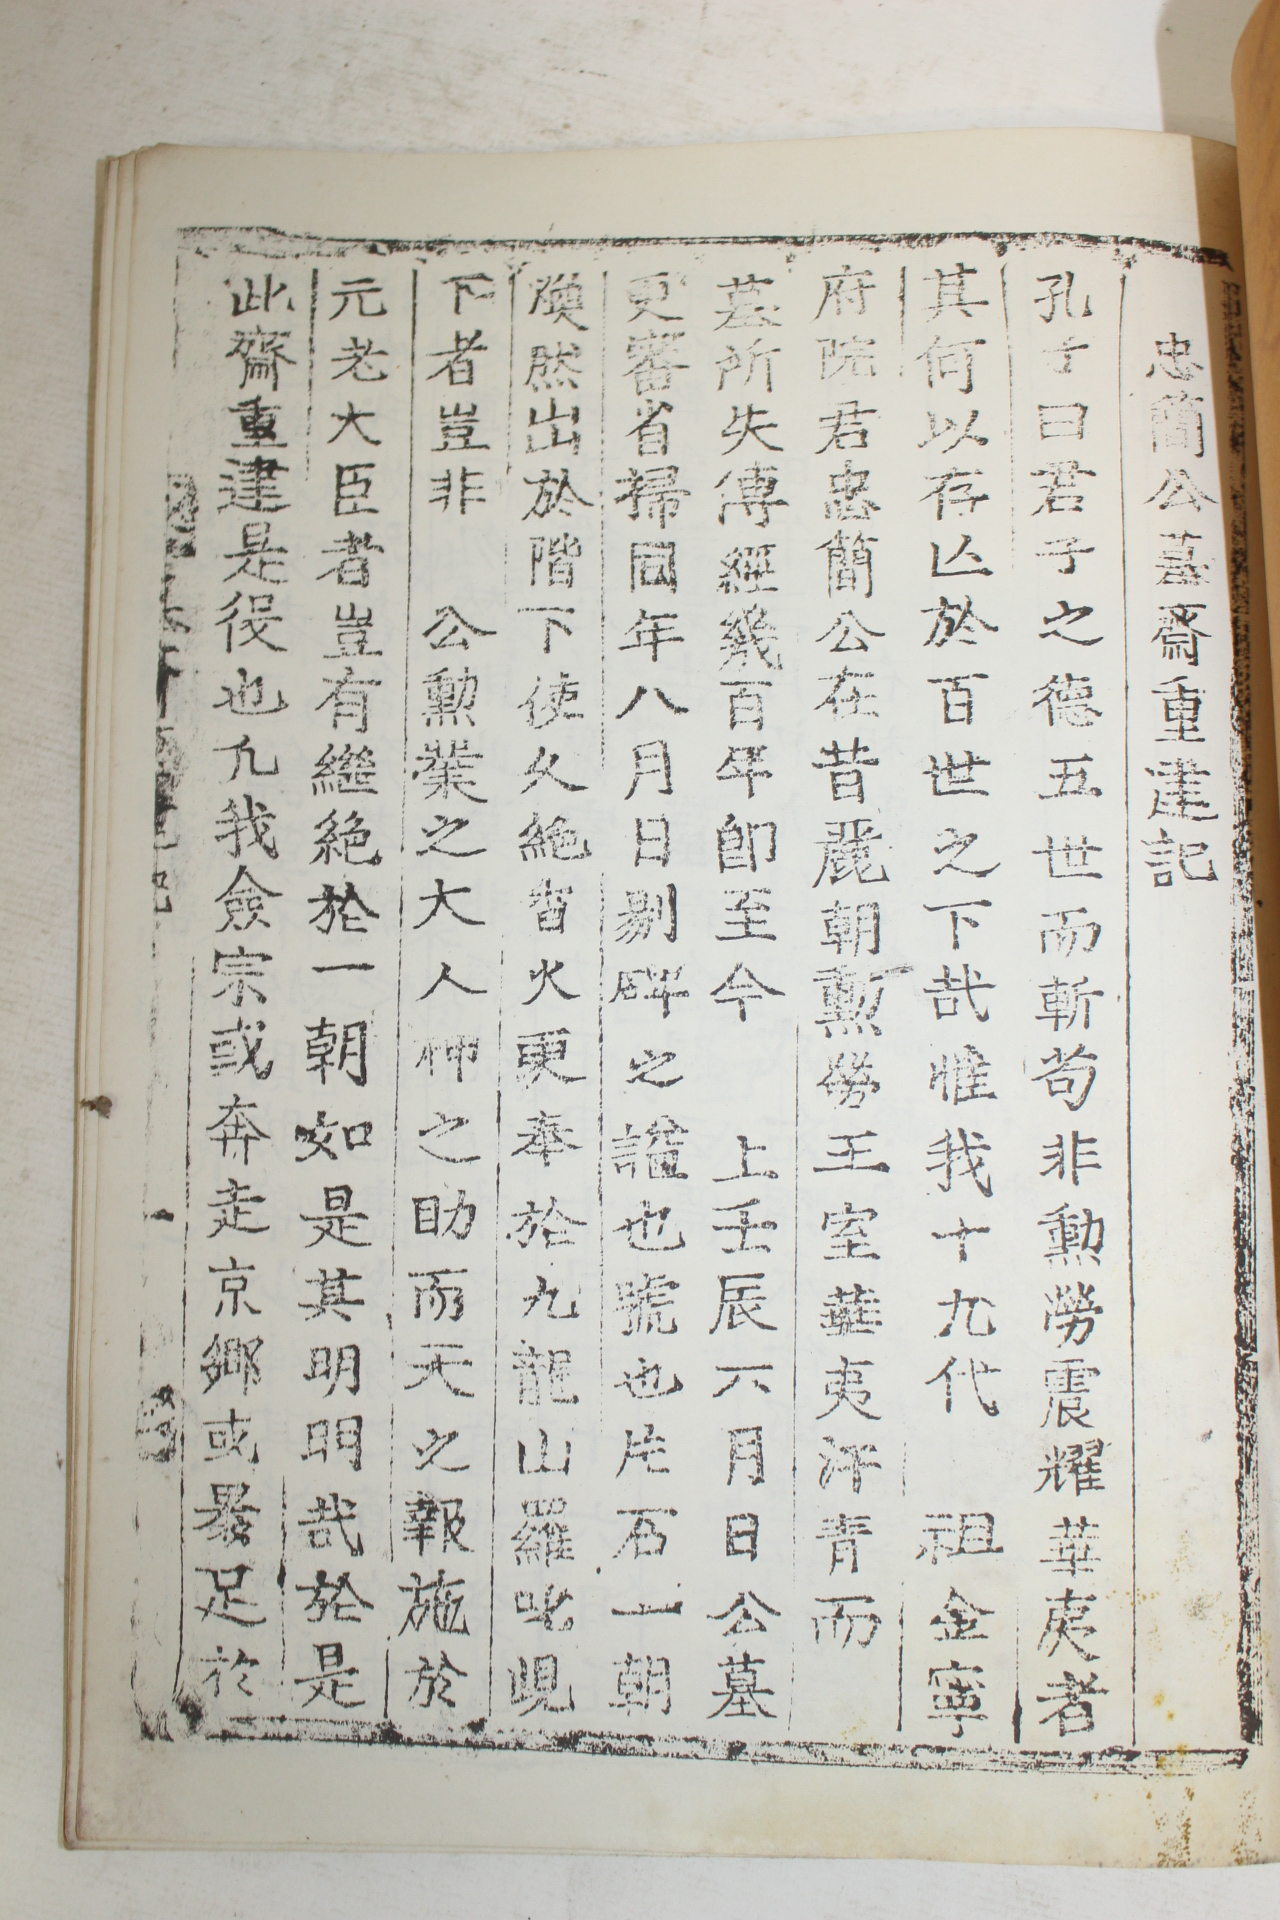 忠簡公墓齋重建記
孔子曰君子之德五世而斬苟非勳勞震耀華夷者
其何以存亾於百世之下哉惟我十九代 祖金寧
府院君忠簡公在昔麗朝勳勞王室華夷汗青而
墓所失傳經幾百年卽至今 上壬辰六月日公墓
更審省掃同年八月日剔碑之諡也號也片石一朝
煥然出於階下使久絶香火更奉於九龍山羅叱峴
下者豈非 公勳業之大人神之助而天之報施於
元老大臣者豈有繼絶於一朝如是其明明哉於是
此齋重建是役也凢我僉宗或奔走京鄉或暴足於